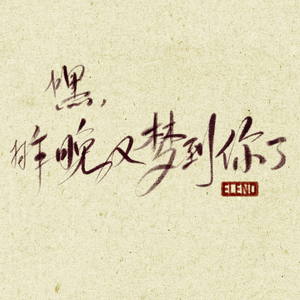 嘿,
昨晚又梦到你了
ELENO